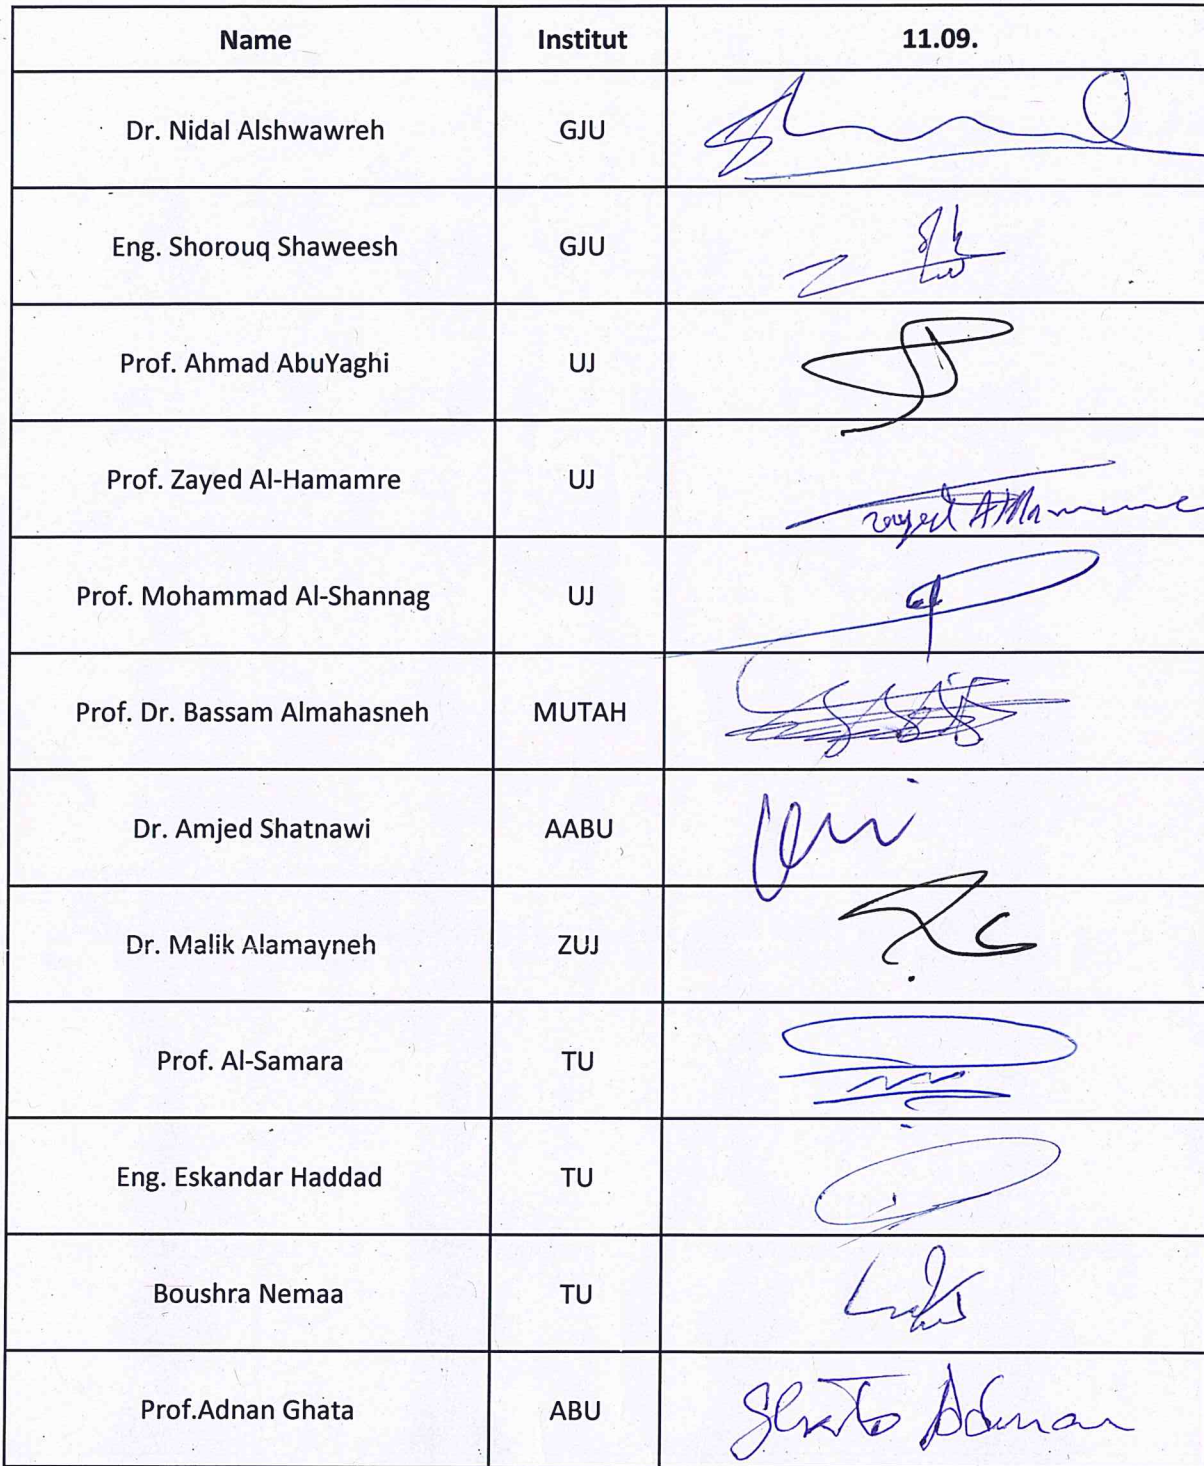 Name Institut 11.09.
Dr. Nidal Alshwawreh GJU
Eng. Shorouq Shaweesh GJU
Prof. Ahmad AbuYaghi UJ
Prof. Zayed Al-Hamamre UJ
Prof. Mohammad Al-Shannag UJ
Prof. Dr. Bassam Almahasneh MUTAH
Dr. Amjed Shatnawi AABU
Dr. Malik Alamayneh ZUJ
Prof. Al-Samara TU
Eng. Eskandar Haddad TU
Boushra Nemaa TU
Prof.Adnan Ghata ABU